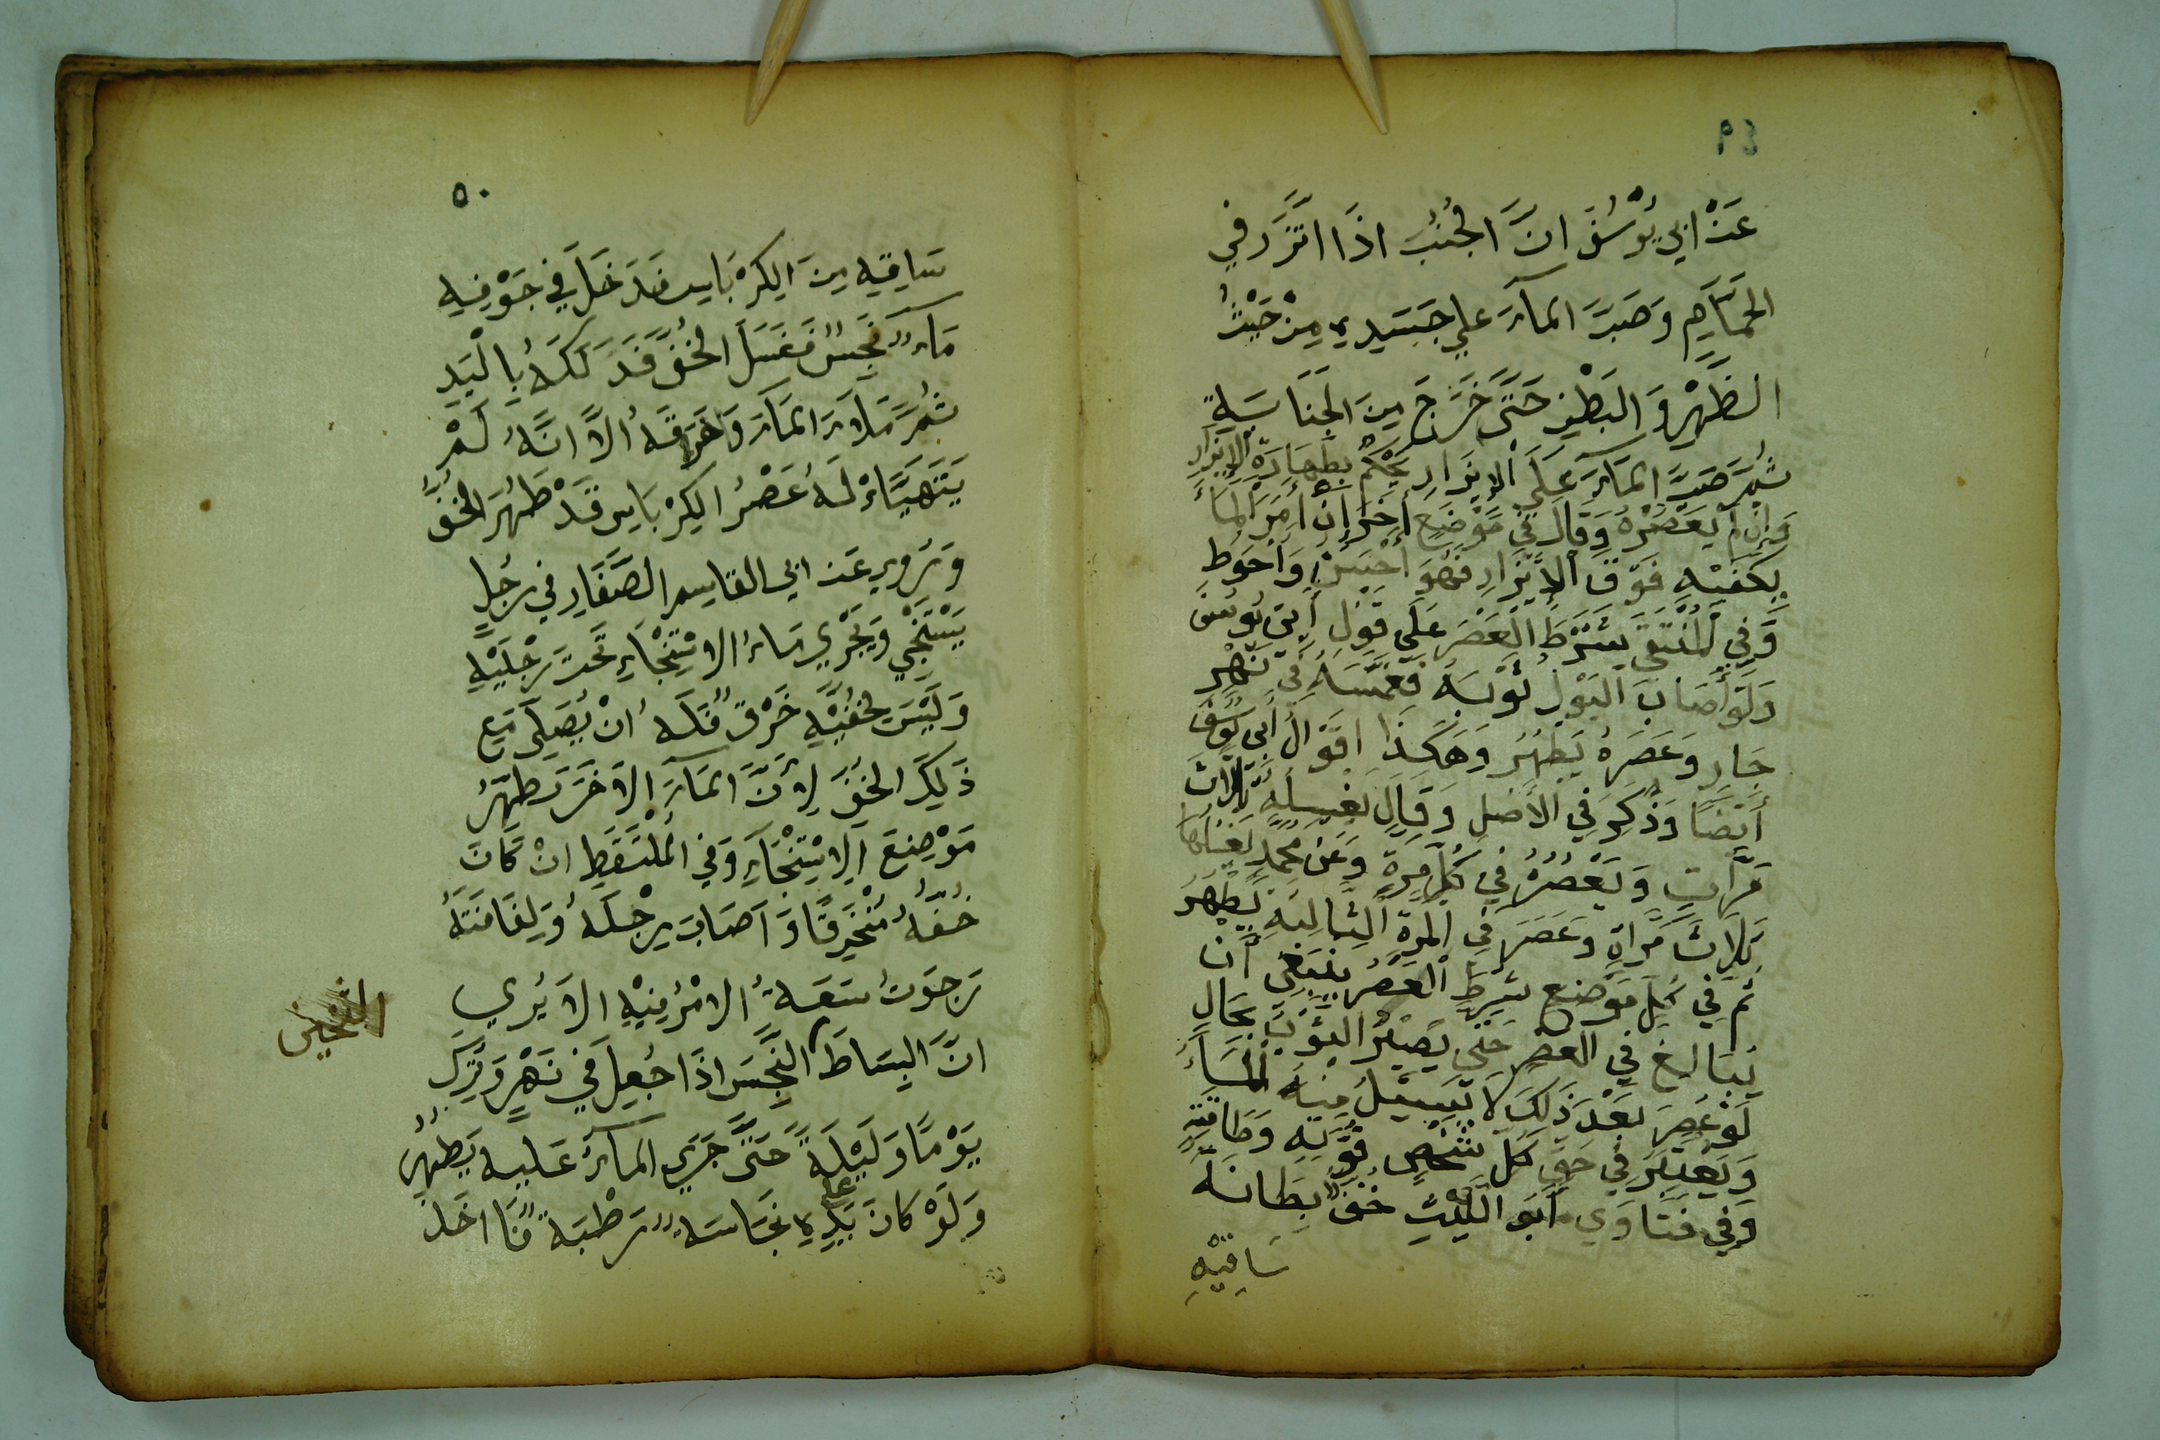 ٤٩
عَنْ ابي يُوْسُفَ انَّ الجُنُبَ اذَا اتَّزَرَ في
الحَمَّامِ وَصَبَّ المآءَ علي جَسَدِهِ مِنْ حَيْثُ
الظَّهْرِ وَ البَطْنِ حَتَّى خَرَجَ مِنَ الجَنَاسَةِ
ثُمَّ صَبَّ المَآءَ عَلَي الإيزَارِ يَحْكُمُ بِطَهَارَةِ الإيزَارِ
وَإنْ لم يَعْصُرْهُ وَقَالَ في مَوْضَعٍ أخَرَ إنْ أمَرَ المَاءَ
بِكَفَيْهِ فَوْقَ الإيْزَارِ فَهُوَ أحْسَنُ وَ أحْوَطُ
وَفِي المُنْتَقَي يَشْتَرِطُ العَصْرَ عَلَي قَولِ أبي يُوْسُفَ
وَلَوْ أصَابَ البَوْلُ ثَوْبَهُ فَغَمَسَهُ في نَهْرٍ
جَارٍ وَعَصَرَهُ يَطْهُرُ وَهَكَذَا اقْوَالُ أبي يُوسُفَ
أيْضًا وَذُكِرَ في الأصْلِ وَقَالَ يَغْسِلهِ ثَلَاثَ
مَرَّاتٍ وَ يَعْصُرُهُ في كُلِّ مَرَةٍ وَعَنْ مُحَمَّدٍ يَغْسِلُهَا
ثَلَاثَ مَرَّاةٍ وَعَصَرَ في المرةِ الثَّالِثَةِ يَطْهُرُ
ثُمَّ في كُلِّ مَوْضَعٍ شُرِطَ العَصْرُ يَنْبَغِي أنْ
يُبَالِغَ في العَصْرِ حَتَّي يَصِيْرَ الثَّوْبُ بِحَالٍ
لَوْ عُصِرَ بَعْدَ ذَلِكَ لَا يَسِيْلُ مِنْهُ المَاءُ
وَيُعْتَبَرُ في حَقِّ كُلِّ شَخْصٍ قُوَّتِهِ وَطَاقَتِهِ
وَفي فَتَاوَي أبُو اللَّيْثِ خُفٌّ بِطَانَةُ
سَاقِيْهِ
٥٠
سَاقِيهِ مِنَ الكِرْبَاسِ فَدَخَلَ في جَوْفِهِ
مَاءٌ نَجِسٌ فَغَسَلَ الخُفَّ فَدَلَكَهُ بِالْيَدِ
ثُمَّ مَلَاءَ المَآءَ وَاهْرَقَهُ الَّا انَّهُ لَمْ
يَتَهَيَّاءْ لَهُ عَصْرُ الكِرْبَاسِ قَدْ طَهُرَ الخُفُّ
وَ رُوِيَ عَن ابي القاسِمِ الصَّفَّارِ في رَجُلٍ
يَسْتَنْجِي وَيَجْرِي مَاءُ الاسْتِنْجَاءِ تَحْتَ رِجْلَيْهِ
وَلَيْسَ بِخُفَيْهِ خَرْقٌ فَلَهُ انْ يُصَلِّيَ مَعَ
ذَلِكَ الخُفِّ لِأَنَّ المَآءَ الآخَرَ يَطَهِّرُ
مَوْضِعَ الاسْتِنْجَاءِ وَفي المُلْتَقَطِ انْ كَانَ
خُفُّهُ مُنْخَرِقًا وَ اَصَابَ رِجْلَهُ وَلِفَافَتَهُ
رَجَوْتُ سَعَةُ الامْرِ فِيْهِ الاَ يُرَي
انَّ البِسَاطَ النَّجِسَ اذَا جُعِلَ في نَهْرٍ وَتُرِكَ
النَّجِسَ
يَوْمًا وَلَيْلَةً حَتَّى جَرَي المَآءُ عَلَيهِ يَطْهُرُ
وَلَوْ كَانَ عَلَي يَدِهِ نَجَاسَةٌ رَطْبَةٌ فَاخَذَ